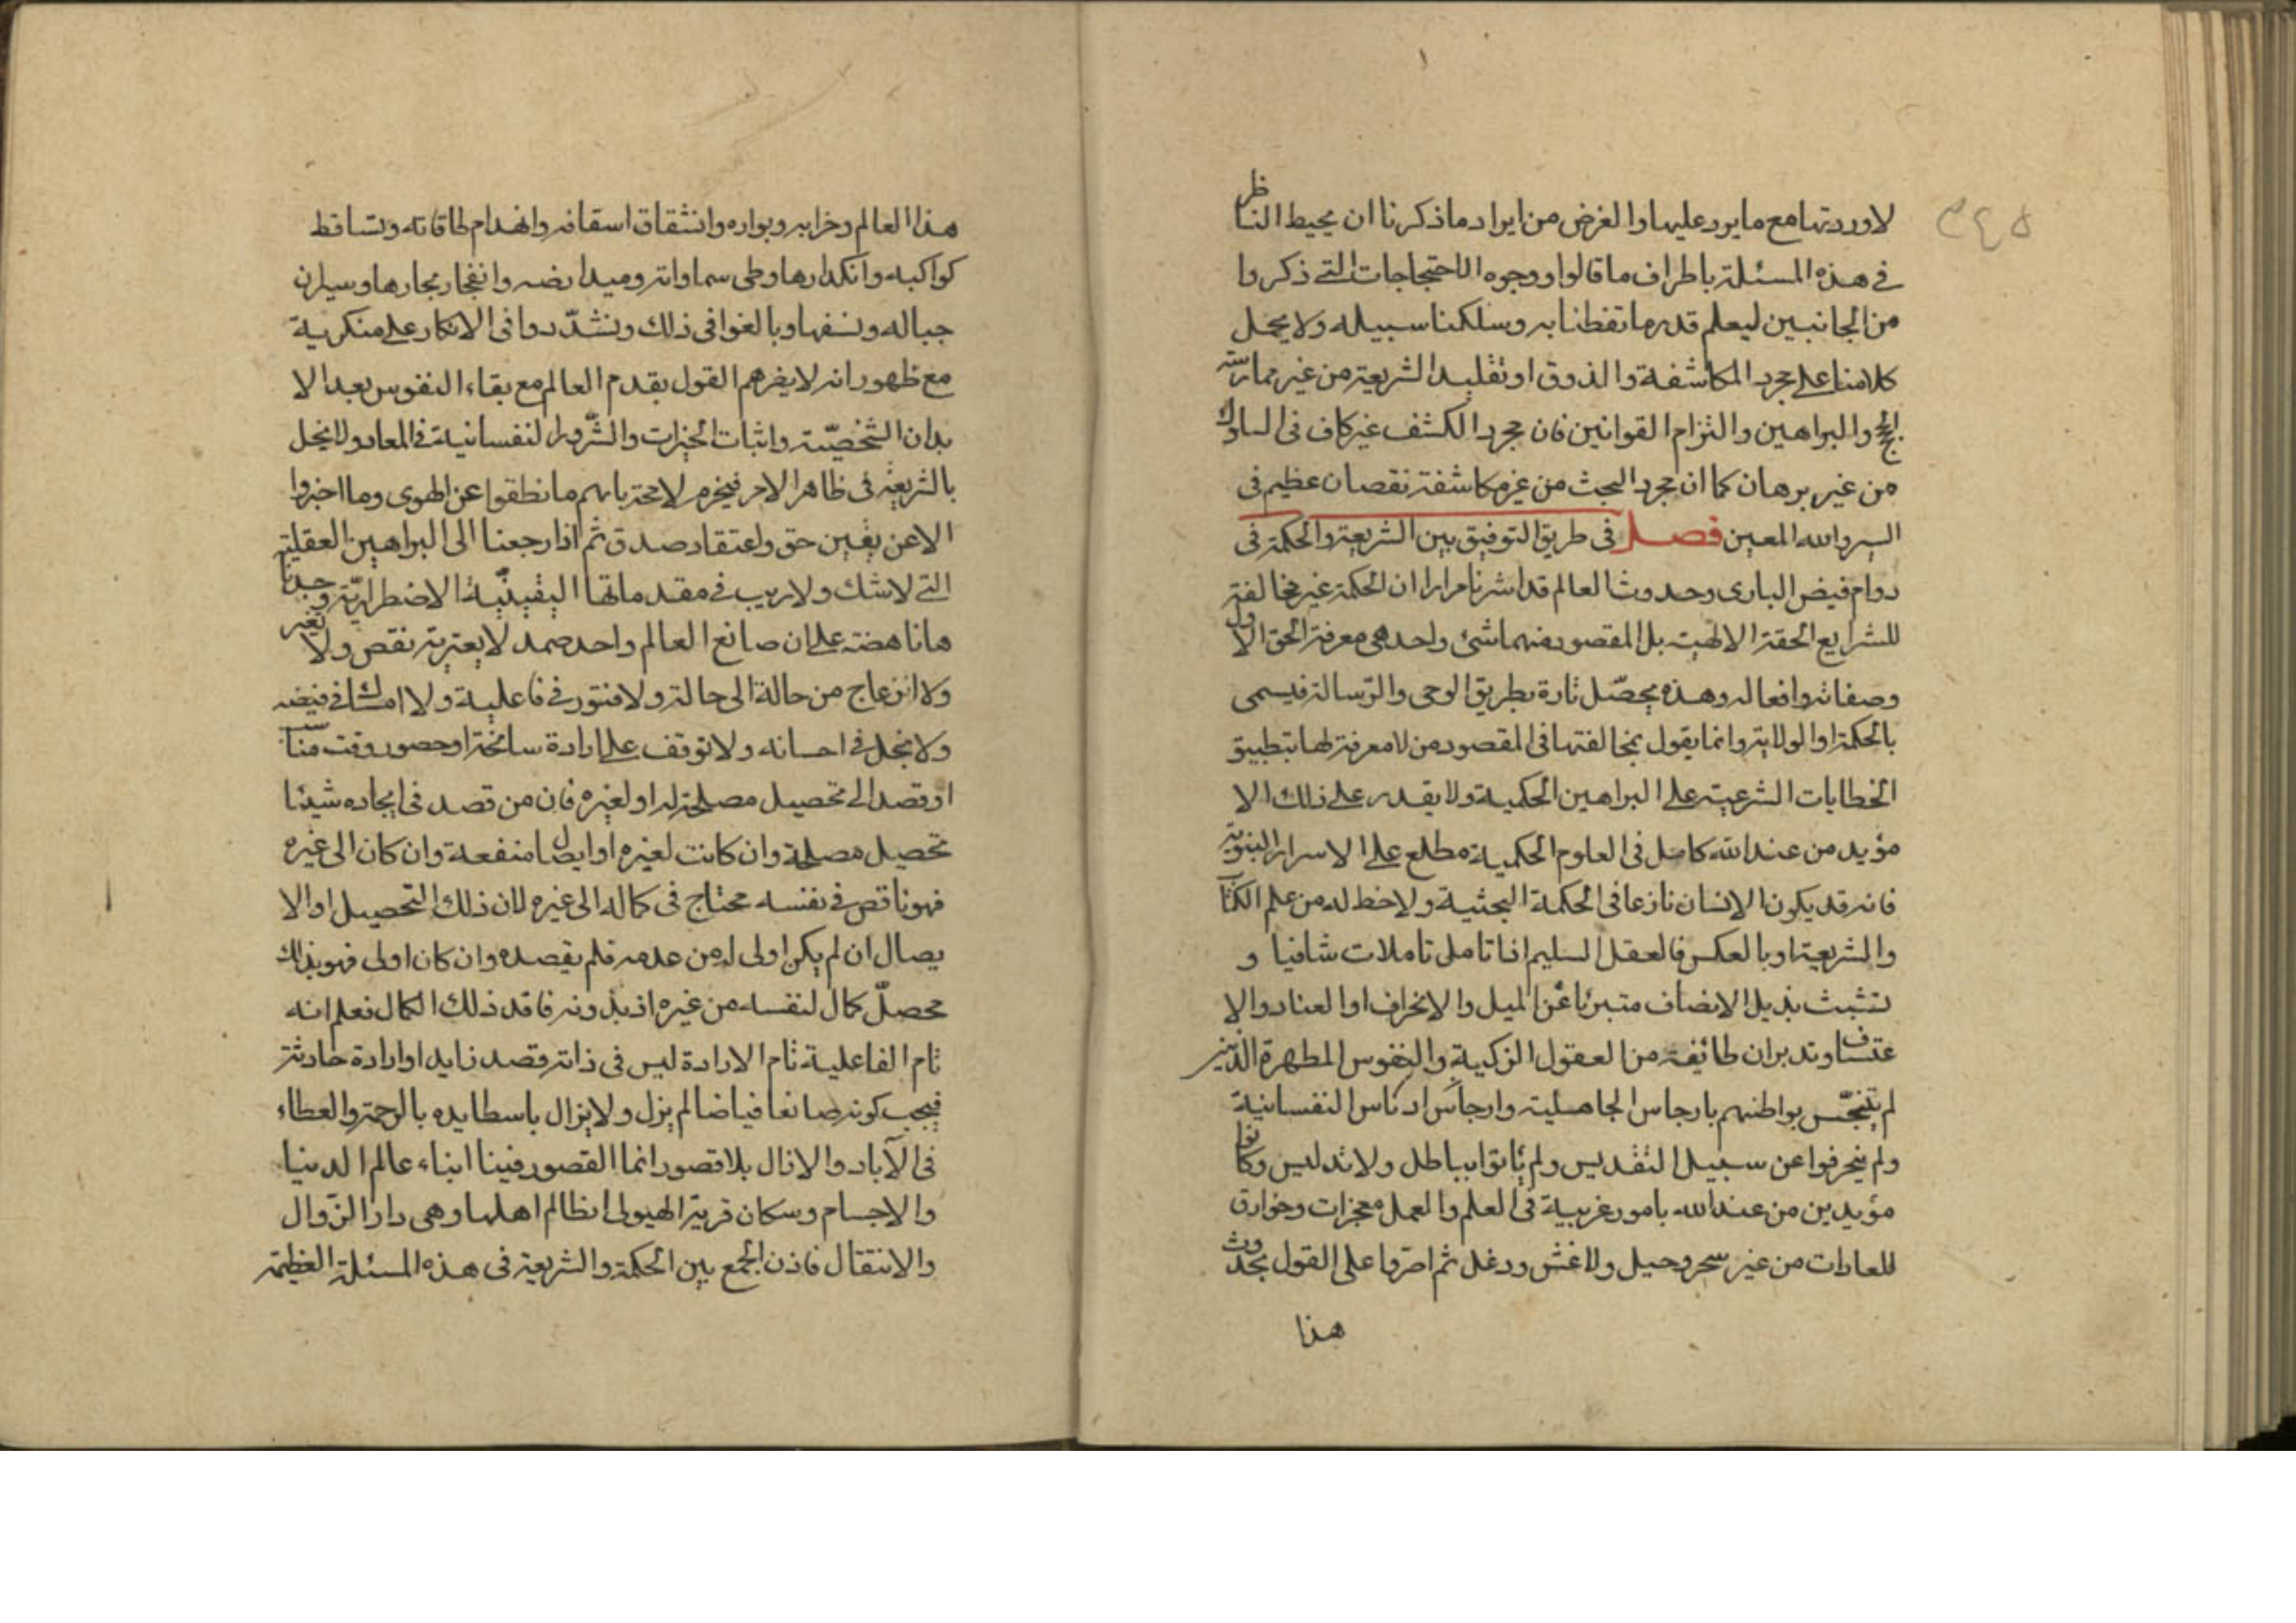 لاوردتها مع ما يرد عليها والغرض من ايراد ما ذكرنا ان يحيط الناظر
في هذه المسئلة باطراف ما قالوا ووجوه الاحتجاجات التي ذكروا
من الجانبين ليعلم قدر ما تفطنا به وسلكنا سبيله ولا يحمل
كلامنا على مجرد المكاشفة والذوق او تقليد الشريعة من غير ممارسة
الحجج والبراهين والتزام القوانين فان مجرد الكشف غير كاف في السلوك
من غير برهان كما ان مجرد البحث من غير مكاشفة نقصان عظيم في
السير والله المعين فصل في طريق التوفيق بين الشريعة والحكمة في
دوام فيض الباري وحدوث العالم قد اشرنا مرارا ان الحكمة غير مخالفة
للشرايع الحقة الالهية بل المقصود منهما شئ واحد هي معرفة الحق الاول
وصفاته وافعاله وهذه يحصّل تارة بطريق الوحي والرّسالة فيسمى
بالحكمة او الولاية وانما يقول بمخالفتها في المقصود من لا معرفة لها بتطبيق
الخطابات الشرعية على البراهين الحكمية ولا يقدر على ذلك الا
مؤيد من عند الله كامل في العلوم الحكمية مطلع على الاسرار النبوية
فانه قد يكون الانسان نازعا في الحكمة البحثية ولا خط له من علم الكتاب
والشريعة او بالعكس فالعقل السليم اذا تامل تاملات شافيا و
تشبث بذيل الانصاف متبرئا عن الميل والانحراف او العناد والا
عتساف وتدبر ان طائفة من العقول الزكية والنفوس المطهرة الذين
لم يتنجّس بواطنهم بارجاس الجاهلية وارجاس ادناس النفسانية
ولم ينحرفوا عن سبيل التقديس ولم ياتوا بباطل ولا تدليس وكانوا
مؤيدين من عند الله بامور غريبة في العلم والعمل معجزات وخوارق
للعادات من غير سحر وحيل ولا غش ودغل ثم اصروا على القول بحدوث
هذا
هذا العالم وخرابه وبواره وانشقاق اسقافه وانهدام طاقاته وتساقط
كواكبه وانكدارها وطي سماواته وميد ارضه وانفجار بحارها وسيلان
جباله ونسفها وبالغوا في ذلك وتشدّدوا في الانكار على منكرية
مع ظهور انه لا يضرهم القول بقدم العالم مع بقاء النفوس بعد الا
بدان الشخصيّة واثبات الخيرات والشّرور النفسانية في المعاد ولا يخل
بالشريعة في ظاهر الامر فيخرم لا محة بانهم ما نطقوا عن الهوى وما اخبروا
الا عن يقين حق واعتقاد صدق ثم اذا رجعنا الى البراهين العقلية
التي لا شك ولا ريب في مقدماتها اليقينّية الاضطراريّة وجدنا
ها ناهضة على ان صانع العالم واحد صمد لا يعتريه نقص ولا تغير
ولا انزعاج من حالة الى حالة ولا فتور في فاعلية ولا امساك في فيضه
ولا بخل في احسانه ولا توقف على ارادة سانحة او حضور وقت مناسب
او قصد الى تحصيل مصلحة له او لغيره فان من قصد في ايجاده شيئا
تحصيل مصلحة وان كانت لغيره او ايصال منفعة وان كان الى غيره
فهو ناقص في نفسه محتاج في كماله الى غيره لان ذلك التّحصيل او الا
يصال ان لم يكن اولى له من عدمه فلم يقصده وان كان اولى فهو بذلك
محصلّ كمال لنفسه من غيره اذ بدونه فاقد ذلك الكمال فعلم انه
تام الفاعلية تام الارادة ليس في ذاته قصد زايد او ارادة حادثة
فيجب كونه صانعا فياضا لم يزل ولا يزال باسطا يده بالرحمة والعطاء
في الآباد والازال بلا قصور انما القصور فينا ابناء عالم الدنيا
والاجسام وسكان قرية الهيولى الظالم اهلها وهي دار الزّوال
والانتقال فاذن الجمع بين الحكمة والشريعة في هذه المسئلة العظيمة